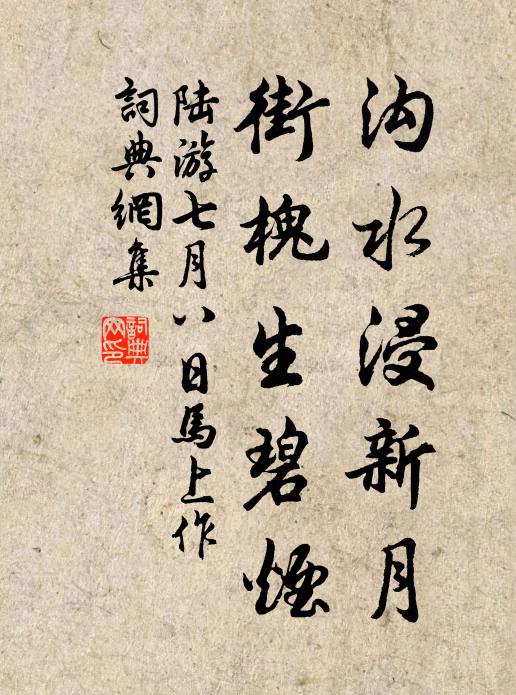 沟水浸新月
街槐生碧煙
陆游七月八日馬上作
詞典網集
詞典
网印